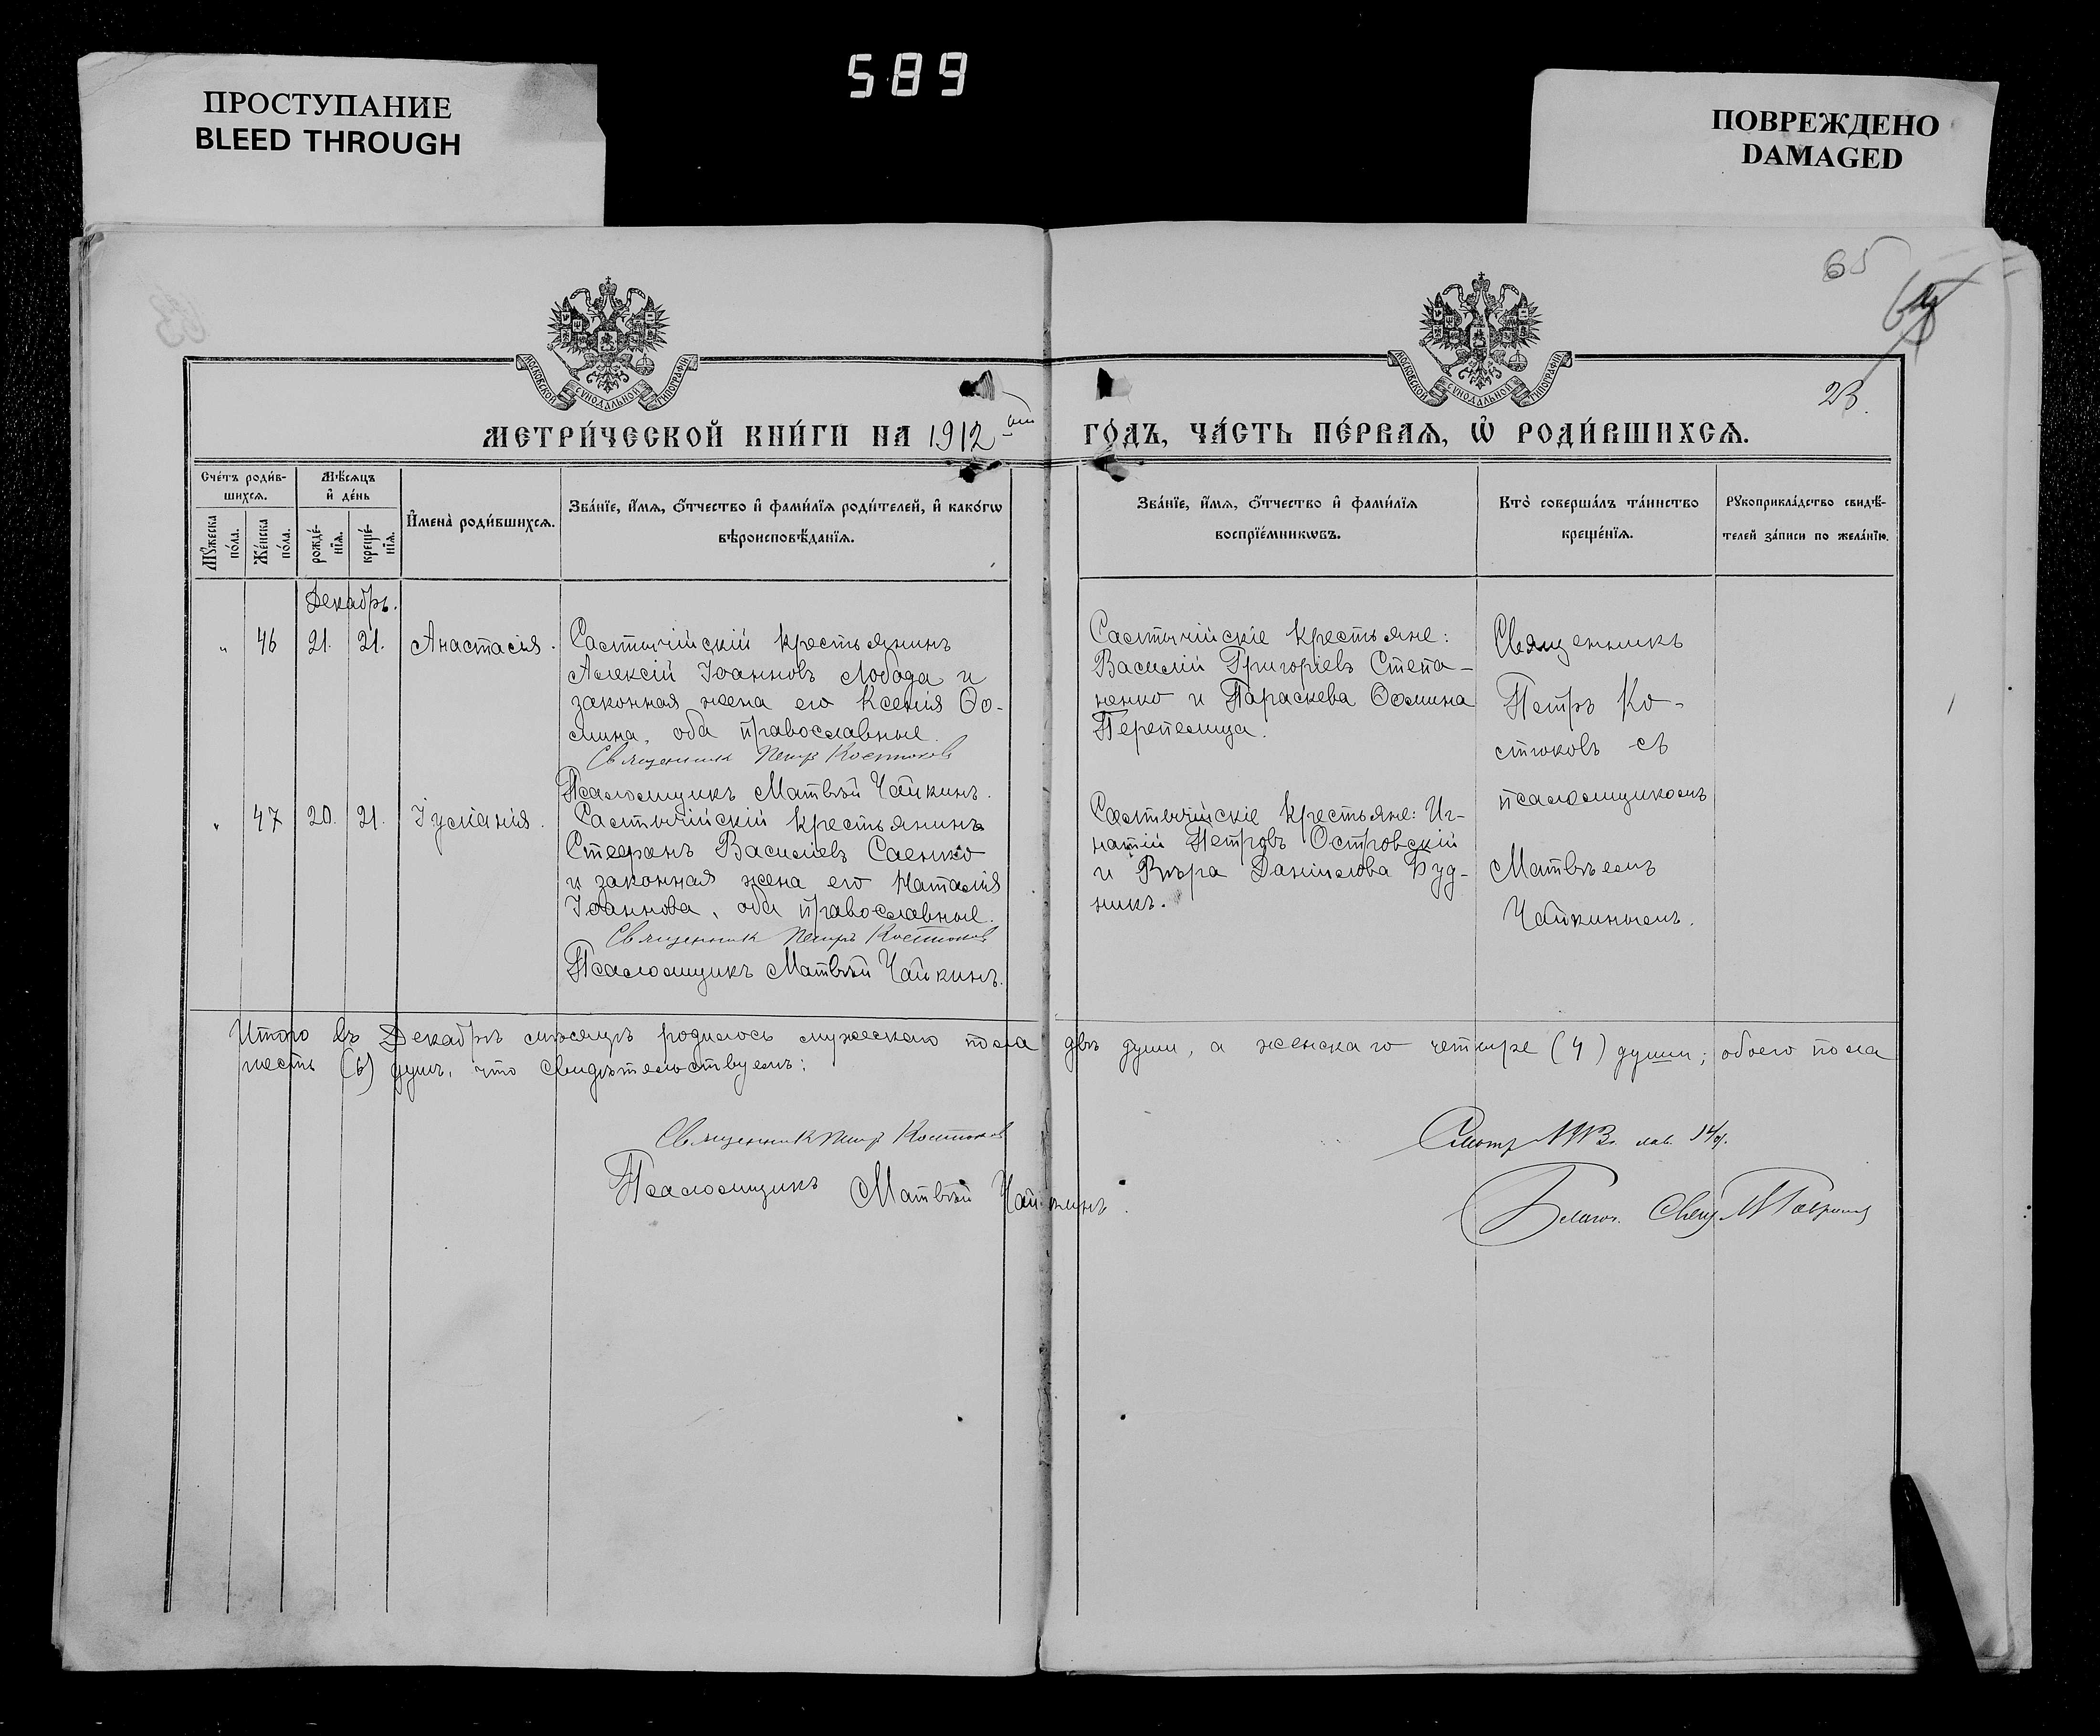 589
ПРОСТУПАНИЕ
BLEED THROUGH
ПОВРЕЖДЕНО
DAMAGED
65
23.
МОСКОВСКОЙ СѴНОДАЛЬНОЙ ТИПОГРАФІИ
МОСКОВСКОЙ СѴНОДАЛЬНОЙ ТИПОГРАФІИ
МЕТРИ́ЧЕСКОЙ КНИ́ГИ НА 1912 ый ГО́ДЪ, ЧА́СТЬ ПЕ́РВАѦ, Ѡ҆ РОДИ́ВШИХСѦ.
Сче́тъ роди́в-
шихсѧ.
Мꙋ́жеска
по́ла.
Же́нска
по́ла.
Мѣ́сѧцъ
и҆ де́нь
рожде́-
нїѧ.
креще́-
нїѧ.
И҆мена̀ роди́вшихсѧ.
Зва́нїе, и҆́мѧ, ѻ҆́тчество и҆ фами́лїѧ роди́телей, и҆ како́гѡ
вѣроисповѣ́данїѧ.
Зва́нїе, и҆́мѧ, ѻ҆́тчество и҆ фами́лїѧ
воспрїе́мникѡвъ.
Кто̀ соверша́лъ та́инство
креще́нїѧ.
Рꙋкоприкла́дство свидѣ́-
телей за́писи по жела́нїю.
Декабрь.
" 46 21. 21. Анастасія.
Салтычійскій крестьянинъ
Алексій Іоанновъ Лобода и
законная жена его Ксенія Ѳо-
мина, оба православные.
Священникъ Петръ Костюковъ
Псаломщикъ Матвѣй Чайкинъ.
Салтычійскіе крестьяне:
Василій Григоріевъ Степа-
ненко и Параскева Ѳомина
Перепелица.
Священникъ
Петръ Ко-
стюковъ съ
псаломщикомъ
Матвѣемъ
Чайкинымъ.
" 47 20. 21. Іуліанія.
Салтычійскій крестьянинъ
Стефанъ Василіевъ Саенко
и законная жена его Наталія
Іоаннова, оба православные.
Священникъ Петръ Костюковъ
Псаломщикъ Матвѣй Чайкинъ.
Салтычійскіе крестьяне: Иг-
натій Петровъ Островскій
и Вѣра Даніилова Буд-
никъ.
Итого въ Декабрѣ мѣсяцѣ родилось мужескаго пола двѣ души, а женскаго четыре (4) души; обоего пола
шесть (6) душъ, что свидѣтельствуемъ:
Священникъ Петръ Костюковъ
Псаломщикъ Матвѣй Чайкинъ.
Благоч. Свящ.